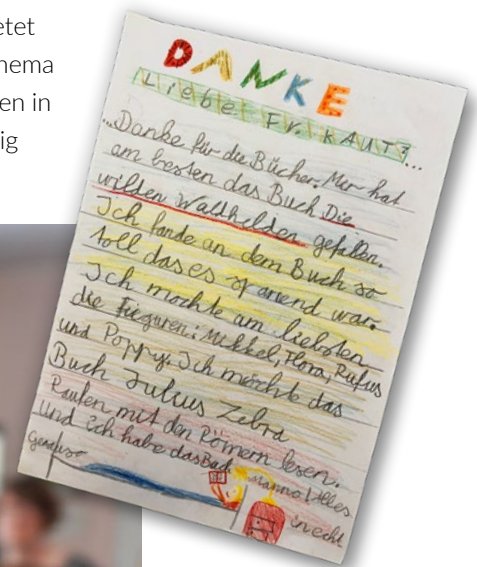 etet
hema
en in
ig
DANKE
Liebe Fr. KAUTZ...
...Danke für die Bücher. Mer hat
am besten das Buch Die
wilden Waldhelden gefallen.
Ich fande an dem Buch so
toll das es spanend war.
Ich mochte am liebsten
die Fieguren: Mikkel, Flora, Rufus
und Poppy. Ich möchte das
Buch Julius Zebra
Raufen mit den Römern lesen.
Und ich habe das Bad
genauso
Alles
in echt